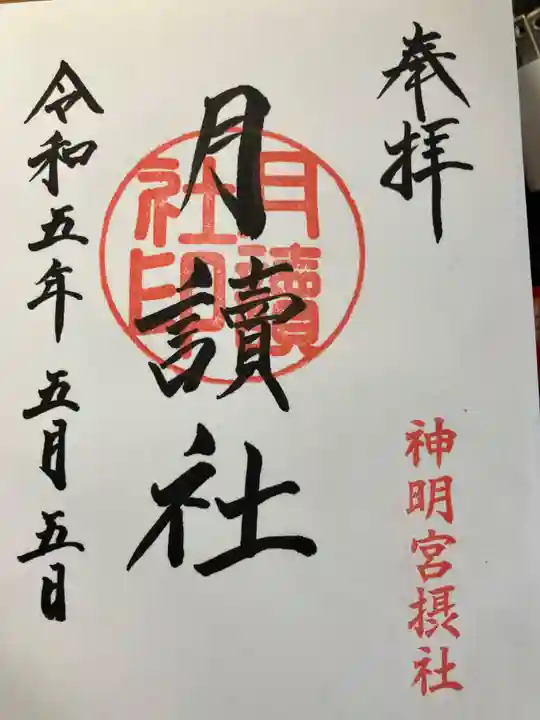 奉拝
神明宮摂社
月讀社
月讀社印
令和五年五月五日